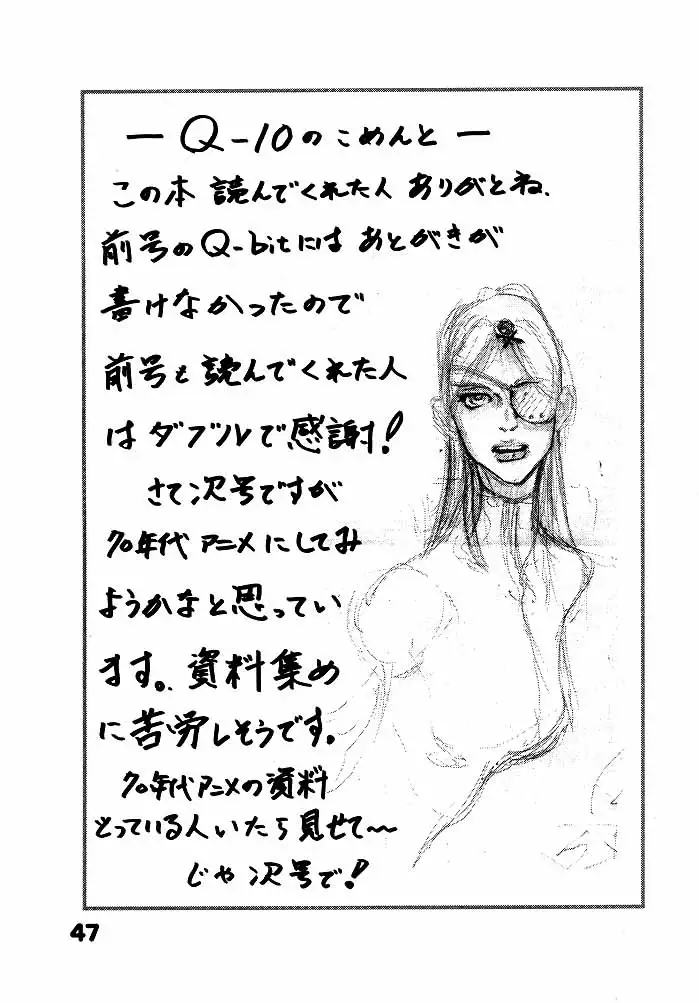 — Q-10のこめんと —
この本 読んでくれた人 ありがとね、
前号のQ-bitには あとがきが
書けなかったので
前号も 読んでくれた人
は ダブルで感謝!
さて次号ですが
70年代 アニメ にしてみ
ようかなと思ってい
ます。資料集め
に苦労しそうです。
70年代アニメの資料
とっている人いたら見せて〜
じゃ 次号で!
47